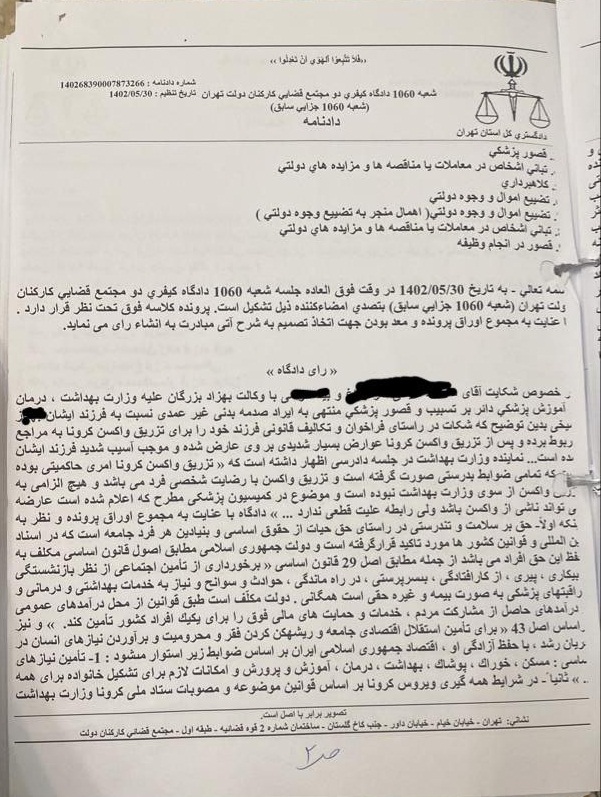 «فَلا تَتَّبِعُوا الْهَوى أَنْ تَعْدِلُوا»
شماره دادنامه : 140268390007873266
تاریخ تنظیم : 1402/05/30
شعبه 1060 دادگاه کیفری دو مجتمع قضایی کارکنان دولت تهران
(شعبه 1060 جزایی سابق)
دادنامه
دادگستری کل استان تهران
قصور پزشکی
تبانی اشخاص در معاملات یا مناقصه ها و مزایده های دولتی
کلاهبرداری
تضییع اموال و وجوه دولتی
تضییع اموال و وجوه دولتی( اهمال منجر به تضییع وجوه دولتی )
تبانی اشخاص در معاملات یا مناقصه ها و مزایده های دولتی
قصور در انجام وظیفه
تعالی - به تاریخ 1402/05/30 در وقت فوق العاده جلسه شعبه 1060 دادگاه کیفری دو مجتمع قضایی کارکنان
تهران (شعبه 1060 جزایی سابق) بتصدی امضاءکننده ذیل تشکیل است. پرونده کلاسه فوق تحت نظر قرار دارد .
عنایت به مجموع اوراق پرونده و معد بودن جهت اتخاذ تصمیم به شرح آتی مبادرت به انشاء رای می نماید.
« رای دادگاه »
خصوص شکایت آقای و با وکالت بهزاد بزرگان علیه وزارت بهداشت ، درمان
آموزش پزشکی دائر بر تسبیب و قصور پزشکی منتهی به ایراد صدمه بدنی غیر عمدی نسبت به فرزند ایشان
بدین توضیح که شکات در راستای فراخوان و تکالیف قانونی فرزند خود را برای تزریق واکسن کرونا به مراجع
برده و پس از تزریق واکسن کرونا عوارض بسیار شدیدی بر وی عارض شده و موجب آسیب شدید فرزند ایشان
است... نماینده وزارت بهداشت در جلسه دادرسی اظهار داشته است که « تزریق واکسن کرونا امری حاکمیتی بوده
که تمامی ضوابط بدرستی صورت گرفته است و تزریق واکسن با رضایت شخصی فرد می باشد و هیچ الزامی به
واکسن از سوی وزارت بهداشت نبوده است و موضوع در کمیسیون پزشکی مطرح که اعلام شده است عارضه
تواند ناشی از واکسن باشد ولی رابطه علیت قطعی ندارد ... » دادگاه با عنایت به مجموع اوراق پرونده و نظر به
اولاً- حق بر سلامت و تندرستی در راستای حق حیات از حقوق اساسی و بنیادین هر فرد جامعه است که در اسناد
المللی و قوانین کشور ها مورد تاکید قرارگرفته است و دولت جمهوری اسلامی مطابق اصول قانون اساسی مکلف به
این حق افراد می باشد از جمله مطابق اصل 29 قانون اساسی «برخورداری از تأمین اجتماعی از نظر بازنشستگی
بیکاری ، پیری ، از کارافتادگی ، بیسرپرستی ، در راه ماندگی ، حوادث و سوانح و نیاز به خدمات بهداشتی و درمانی و
پزشکی به صورت بیمه و غیره حقی است همگانی . دولت مکلّف است طبق قوانین از محل درآمدهای عمومی
درآمدهای حاصل از مشارکت مردم ، خدمات و حمایت های مالی فوق را برای یکیک افراد کشور تأمین کند. » و نیز
اساس اصل 43 « برای تأمین استقلال اقتصادی جامعه و ریشهکن کردن فقر و محرومیت و برآوردن نیازهای انسان در
رشد ، با حفظ آزادگی او ، اقتصاد جمهوری اسلامی ایران بر اساس ضوابط زیر استوار میشود : 1- تأمین نیازهای
: مسکن ، خوراک ، پوشاک ، بهداشت ، درمان ، آموزش و پرورش و امکانات لازم برای تشکیل خانواده برای همه
. » ثانیاً - در شرایط همه گیری ویروس کرونا بر اساس قوانین موضوعه و مصوبات ستاد ملی کرونا وزارت بهداشت
تصویر برابر با اصل است.
نشانی: تهران - خیابان خیام - خیابان داور - جنب کاخ گلستان - ساختمان شماره 2 قوه قضائیه - طبقه اول - مجتمع قضائی کارکنان دولت
ص۲